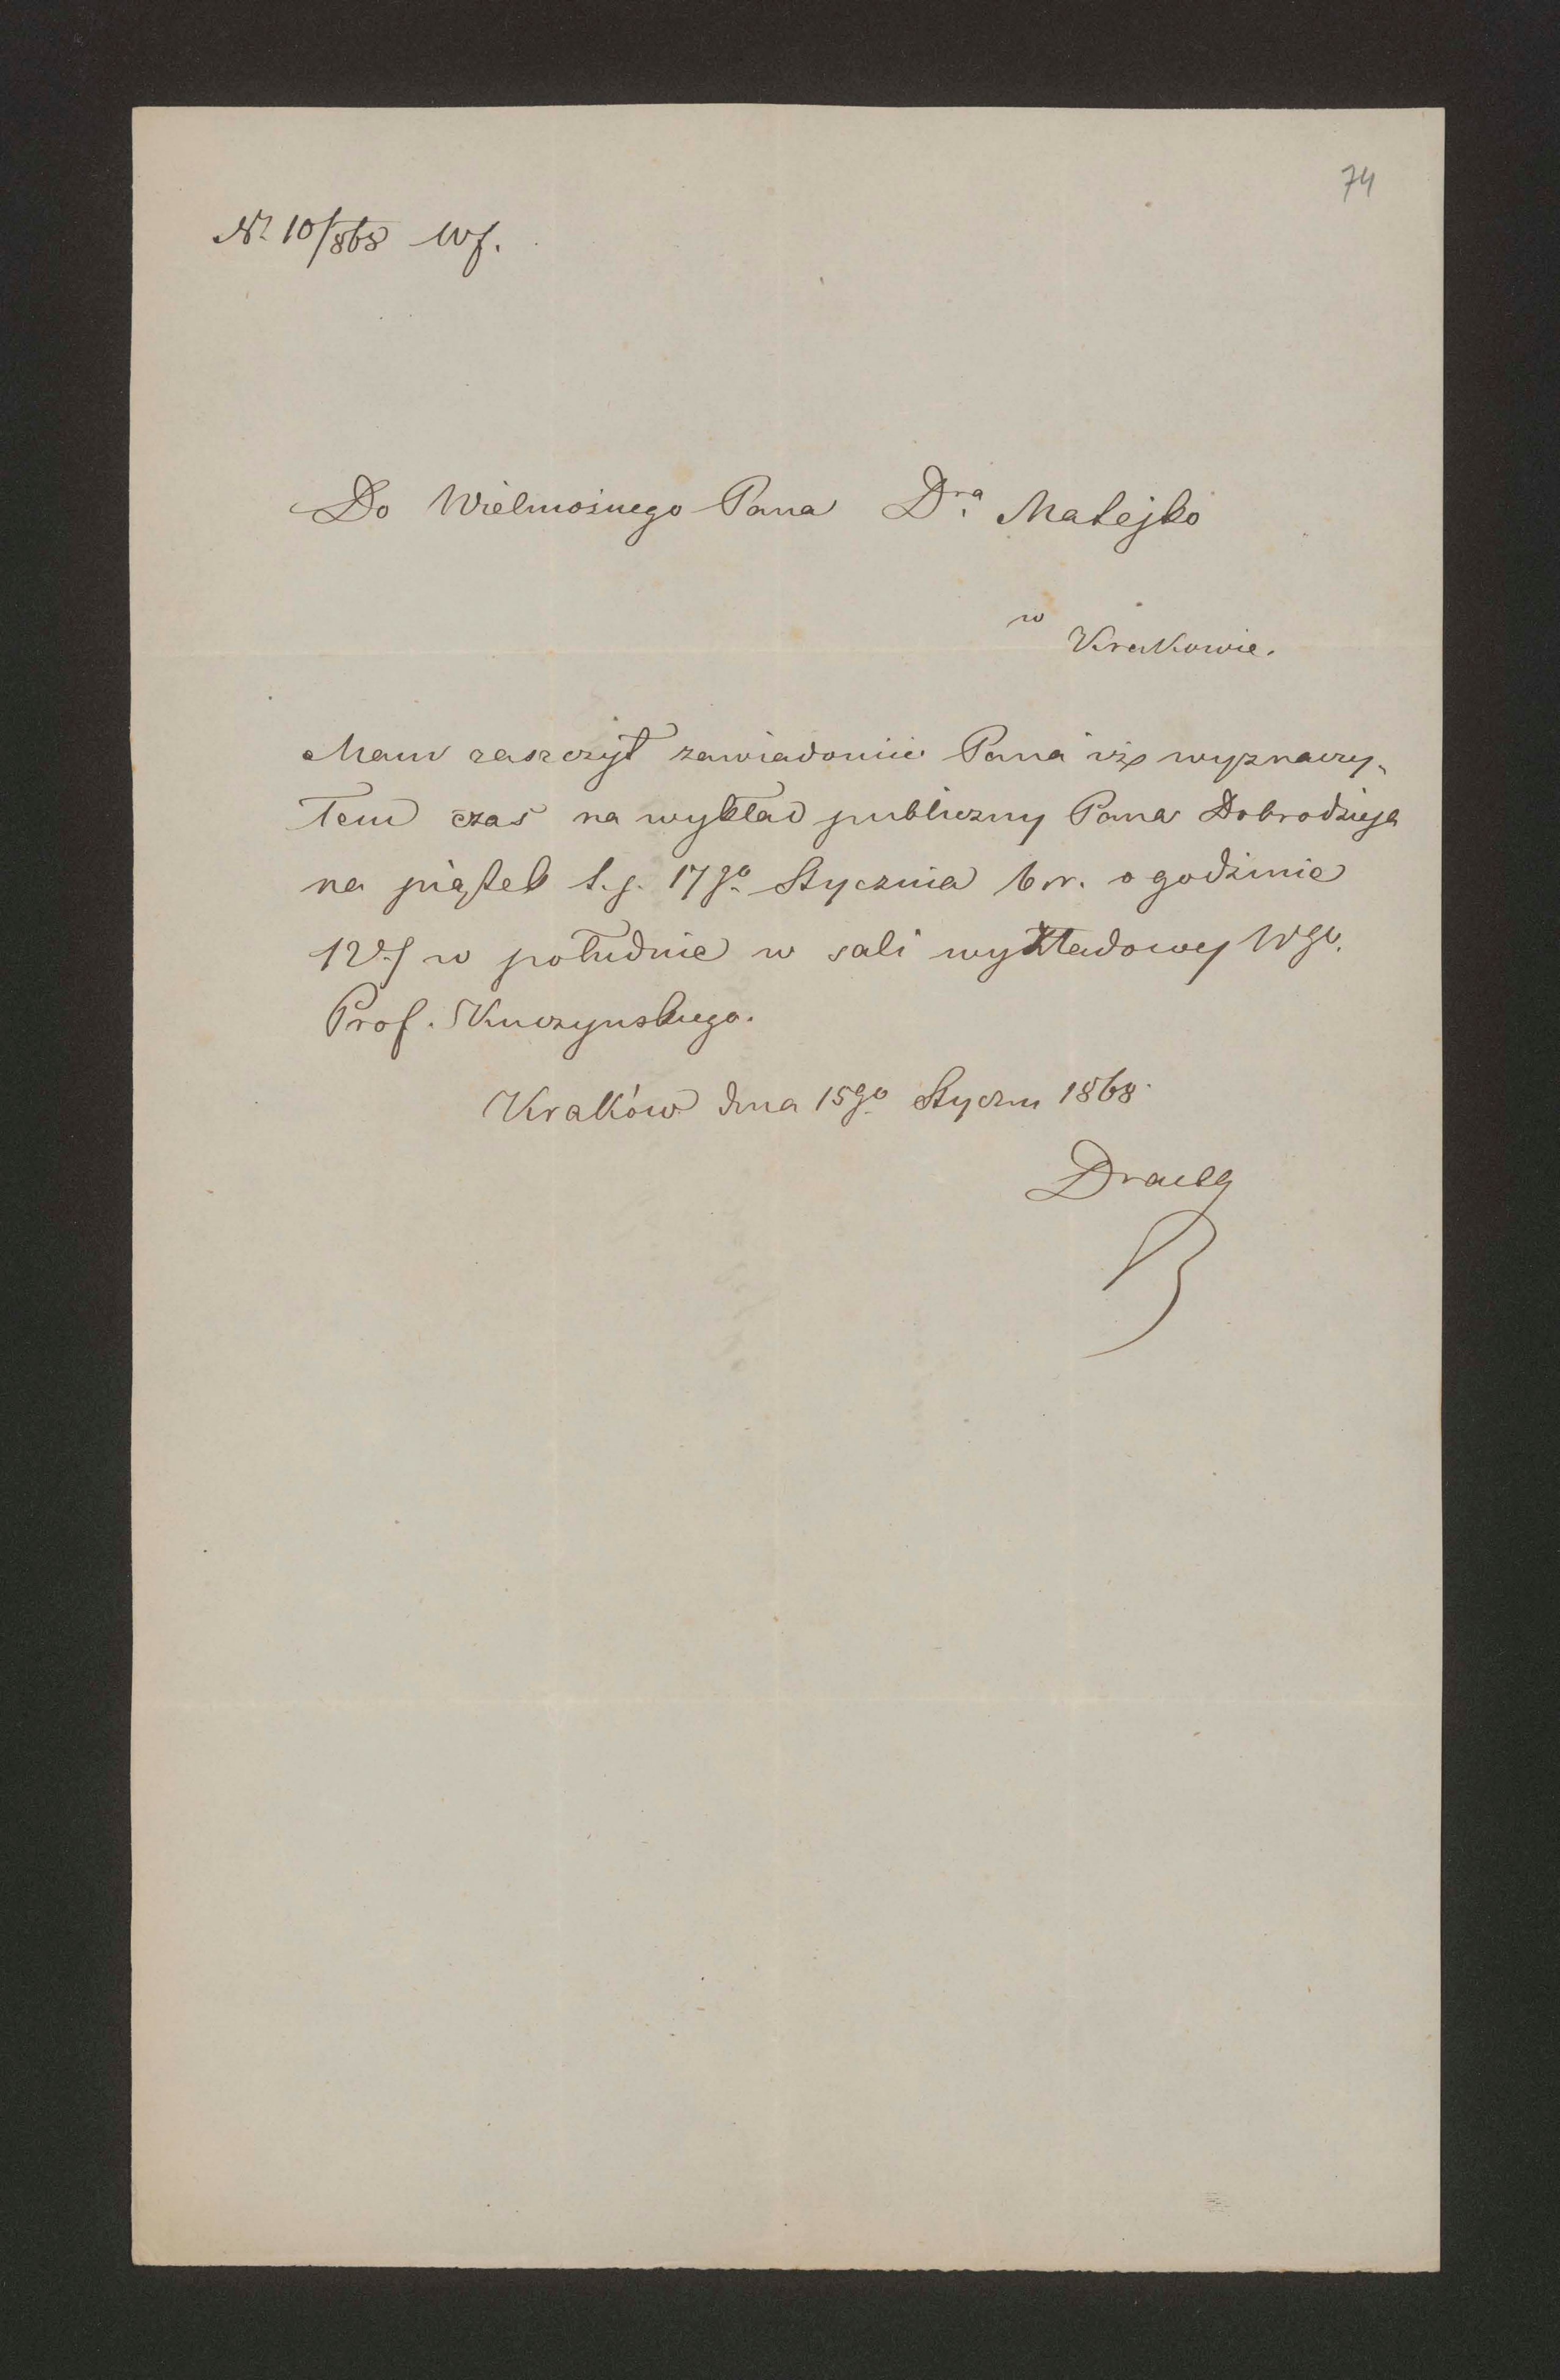 74
Nr 10/868 Wf.
Do Wielmożnego Pana Dra Matejko
w
Krakowie.
Mam zaszczyt zawiadomić Pana iż wyznaczy-
łem czas na wykład publiczny Pana Dobrodzieja
na piątek t.j. 17go Stycznia b.r. o godzinie
12ej w południe w sali wykładowej Wgo.
Prof. Kuczynskiego.
Kraków dnia 15go Styczn 1868